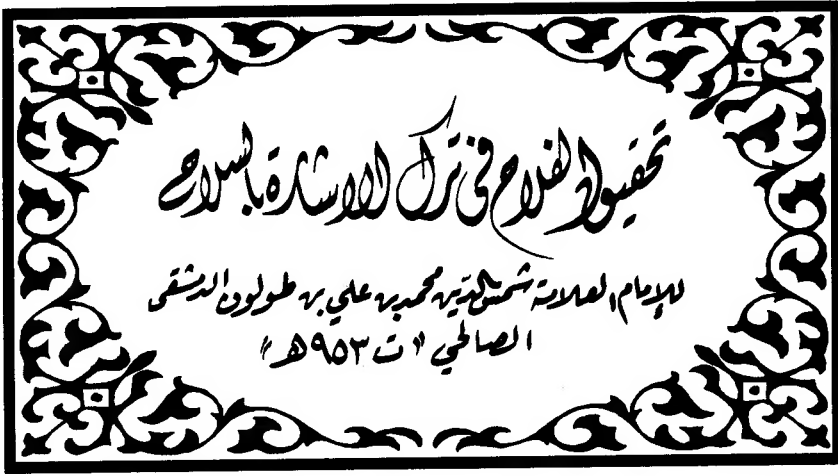 تحقيق الفلاح في ترك الإشارة بالسلاح
للإمام العلامة شمس الدين محمد بن علي بن طولون الدمشقي
الصالحي « ت ٩٥٣ هـ »